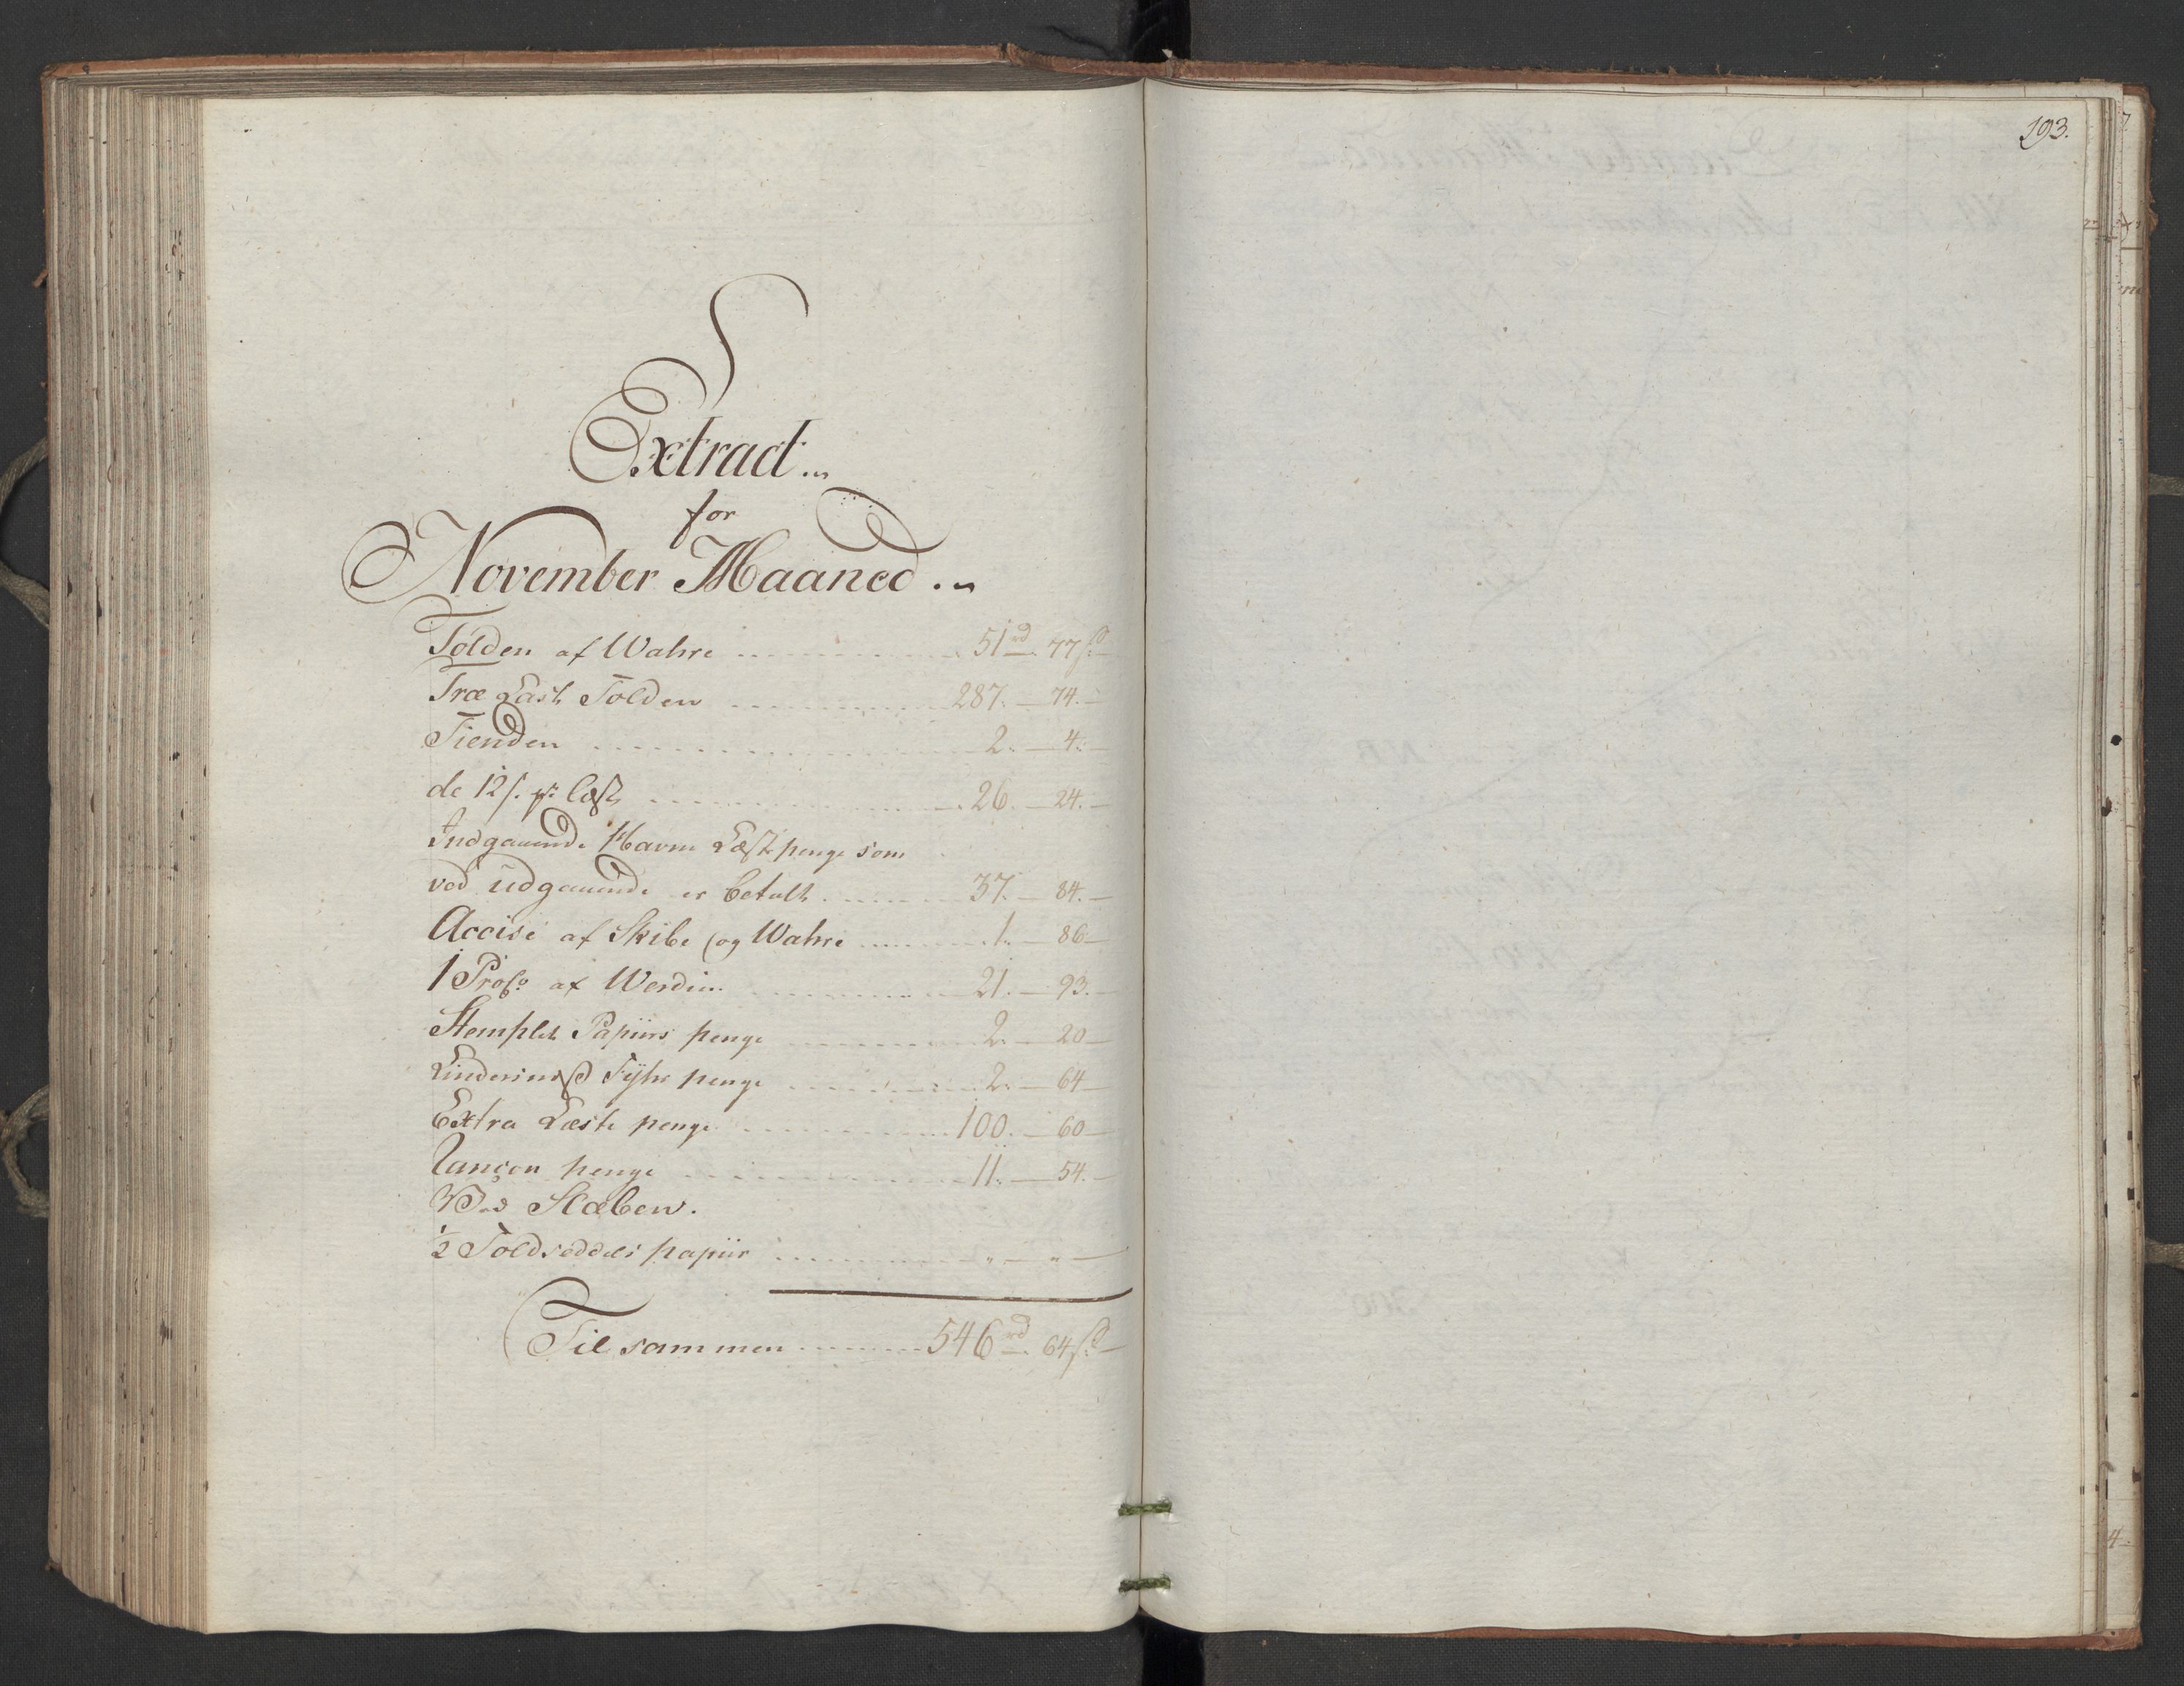 Extract...
for
November Maaned...
Tolden af Wahre ... 51 rd 77 s
Træ Last Tolden ... 287. — 74. —
Tienden ... 2. — 4. —
de 12 s. pr: læst ... 26. — 24. —
Indgaaende Havne Læste penge som
ved udgaaende er betalt ... 37. — 84. —
Accise af Skibe og Wahre ... 1. — 86 —
1 Proco af Werdien ... 21. — 93. —
Stemplet Papiirs penge ... 2. — 20 —
Lindesnæss Fyhr penge ... 2. — 64 —
Extra Læste penge ... 100. — 60 —
Rançon penge ... 11. — 54. —
Slaben.
1/2 Toldseddels papiir ... " — " —
Tilsammen ... 546 rd 64 s —
193.